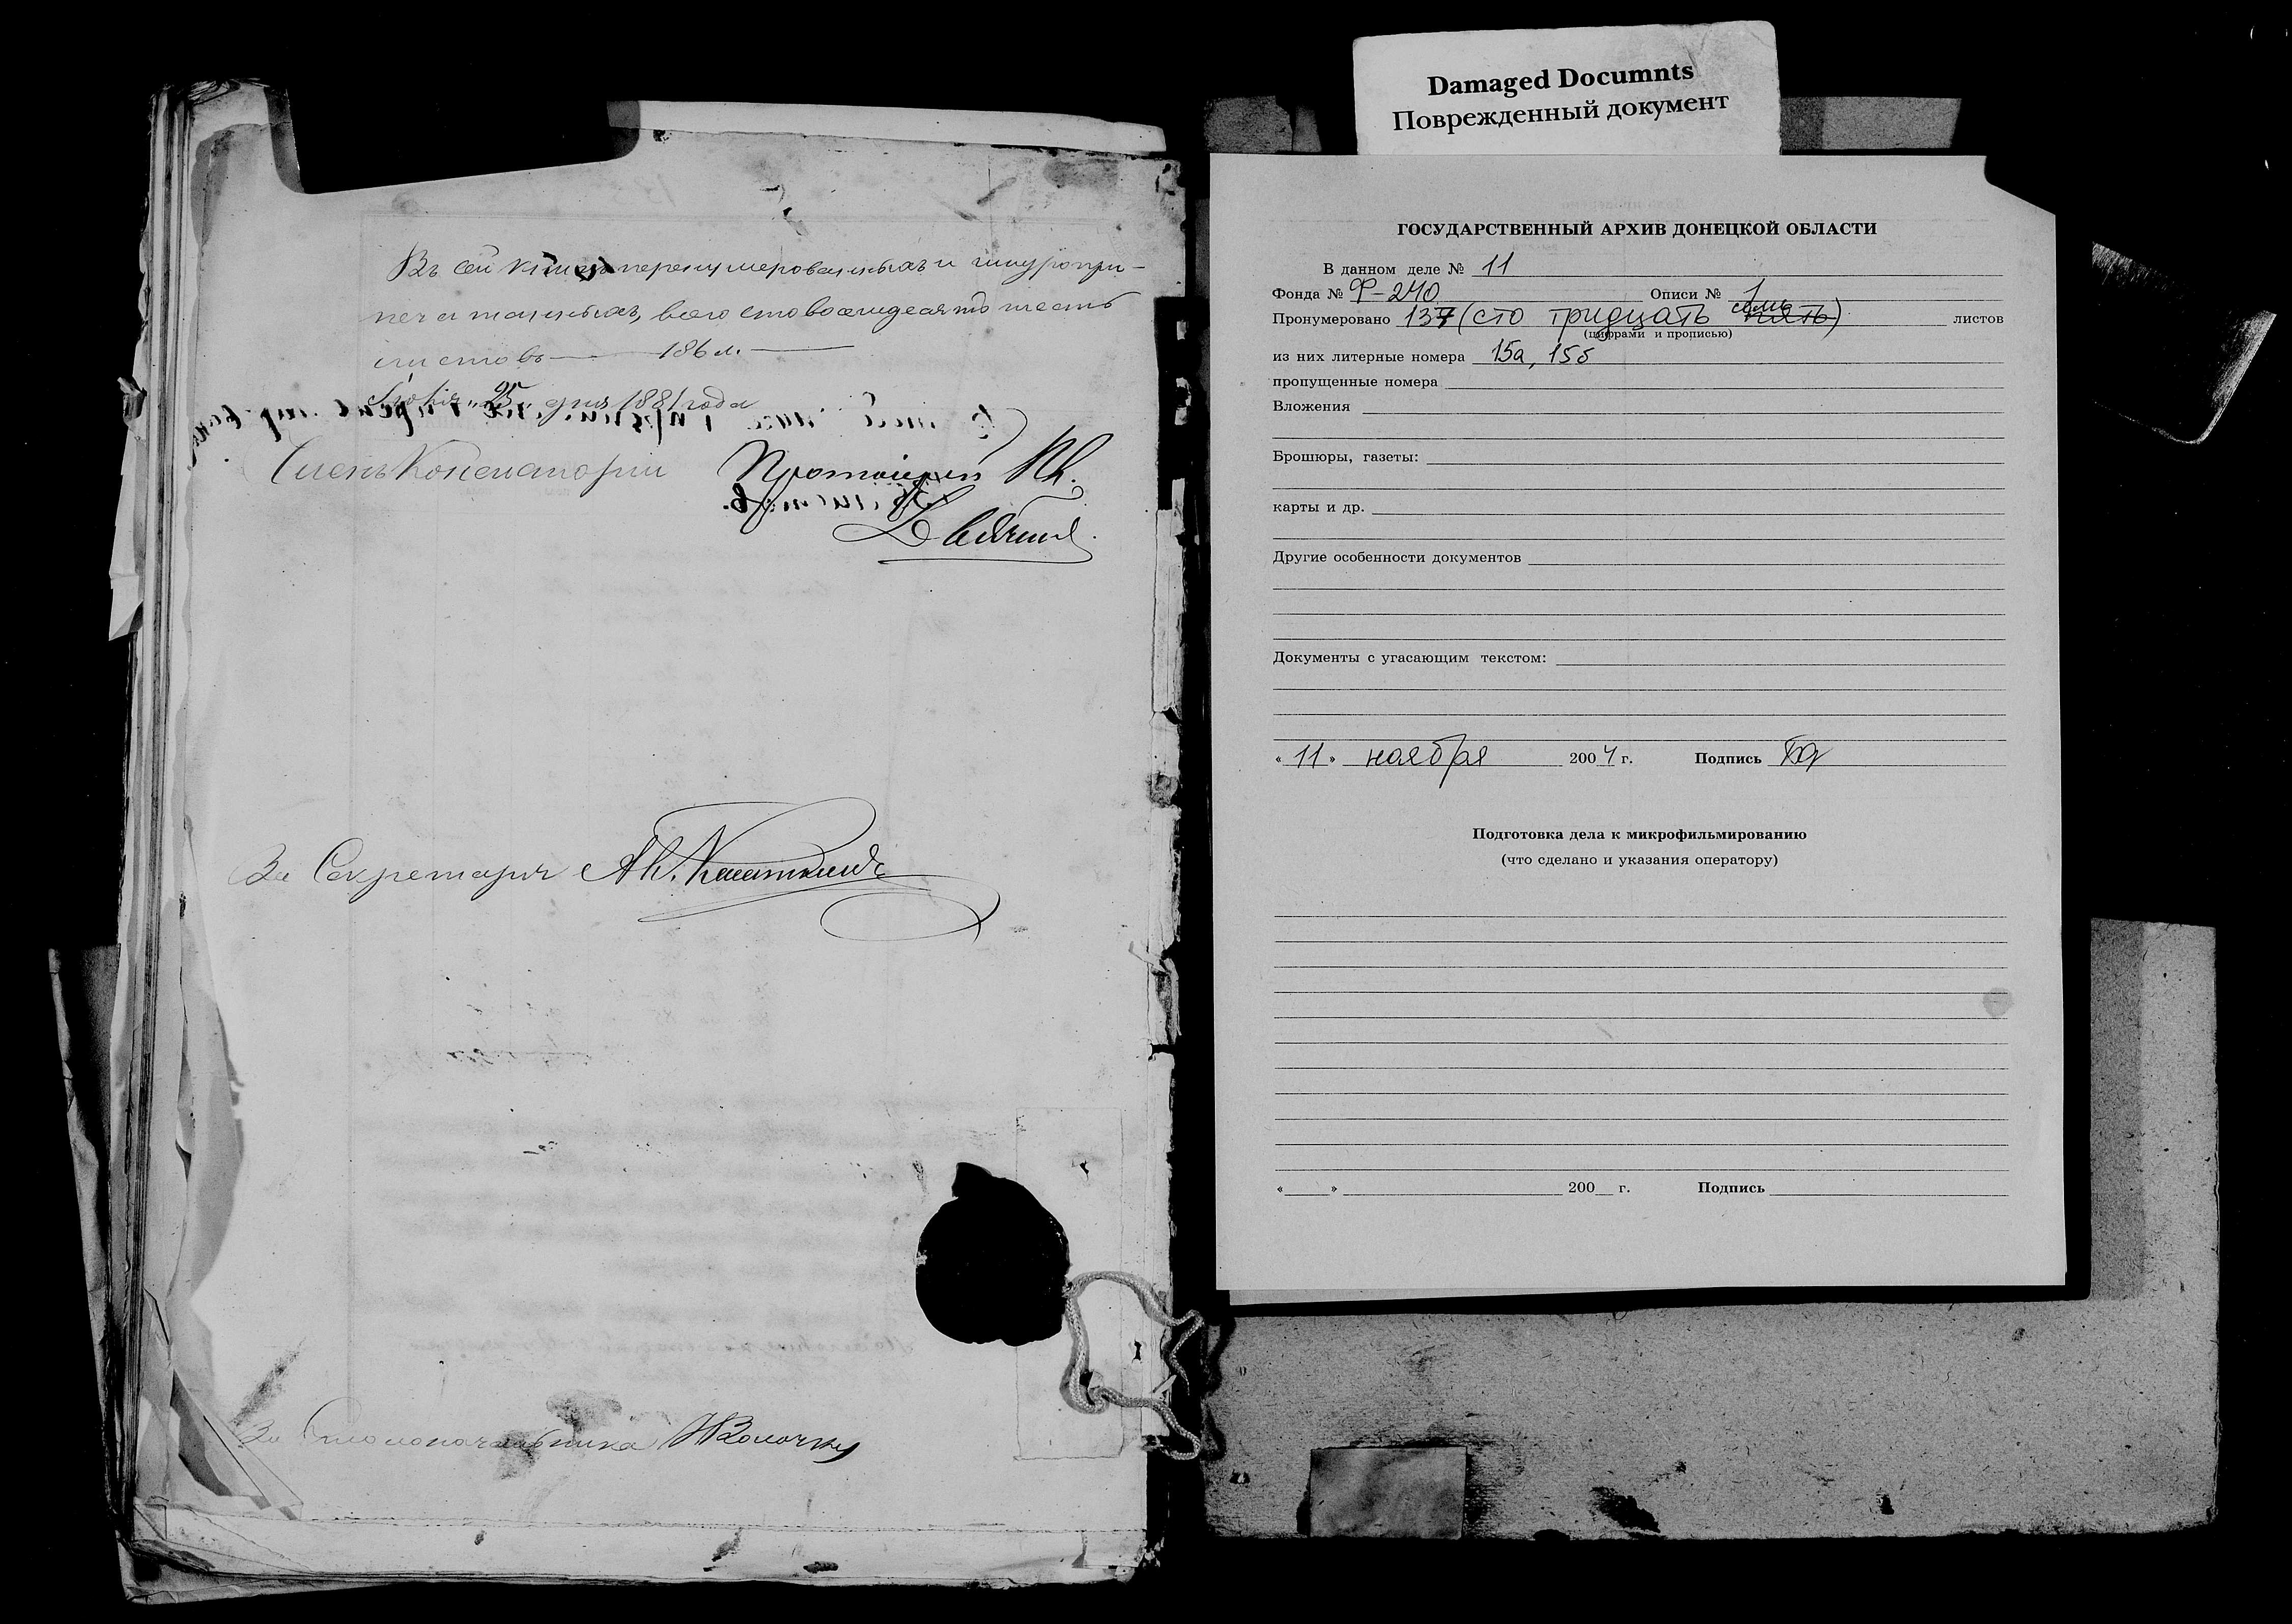 Въ сей книгѣ перенумерованныхъ и шнуропри-
печатанныхъ, всего сто восемдесятъ шесть
листовъ — 186 л. —
Іюня „25„ дня 1881 года
Членъ Консисторіи Протоіерей
За Секретаря
За Столоначальника
Damaged Documnts
Поврежденный документ
ГОСУДАРСТВЕННЫЙ АРХИВ ДОНЕЦКОЙ ОБЛАСТИ
В данном деле № 11
Фонда № Ф-240 Описи № 1
Пронумеровано 137 (сто тридцать семь пять) листов
(цифрами и прописью)
из них литерные номера 15а, 15б
пропущенные номера
Вложения
Брошюры, газеты:
карты и др.
Другие особенности документов
Документы с угасающим текстом:
« 11 » ноября 2004 г. Подпись
Подготовка дела к микрофильмированию
(что сделано и указания оператору)
« » 200 г. Подпись